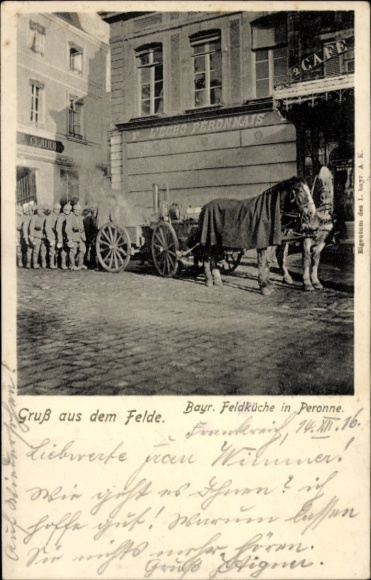 CAFÉ
L'ECHO PERONNAIS
CLAUDE
Eigentum des I. bayr. A. K.
Gruß aus dem Felde.
Bayr. Feldküche in Peronne.
Frankreich, 14. XII. 16.
Liebwerte Frau Wimmer!
Wie geht es Ihnen? ich
hoffe gut! Warum lassen
Sie nichts mehr hören.
Gruß Aigner.
Auf Wiedersehen!